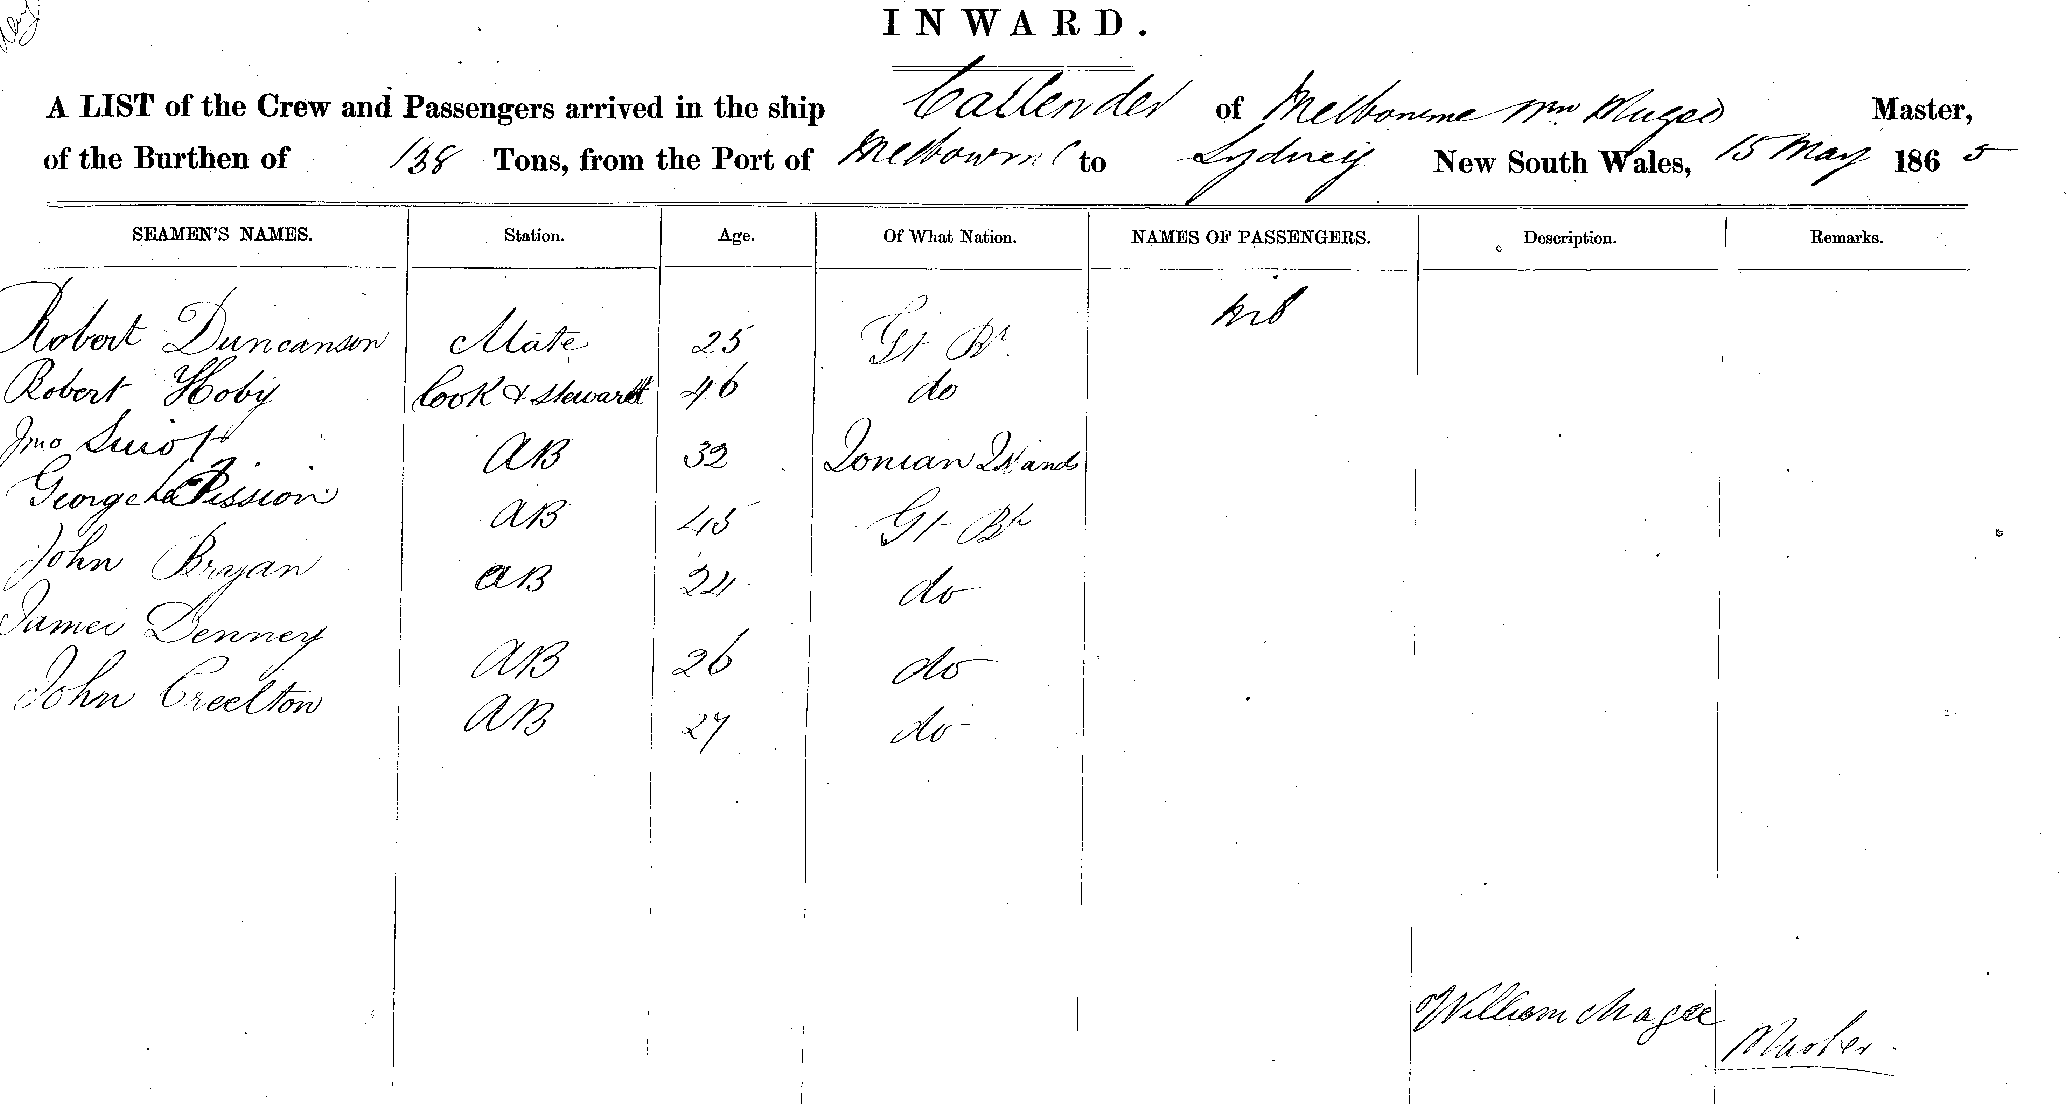 INWARD.
A LIST of the Crew and Passengers arrived in the ship Callender of Melbourne Wm Magee Master,
of the Burthen of 138 Tons, from the Port of Melbourne to Sydney New South Wales, 15 May 1865
SEAMEN'S NAMES. Station. Age. Of What Nation. NAMES OF PASSENGERS. Description. Remarks.
Nil
Robert Duncanson Mate 25 Gt Bt
Robert Hoby Cook & Steward 46 do
Jno AB 32 Ionian Islands
George Pission AB 45 Gt Bt
John Bryan AB 24 do
James Denney AB 26 do
John Creelton AB 27 do
William Magee Master